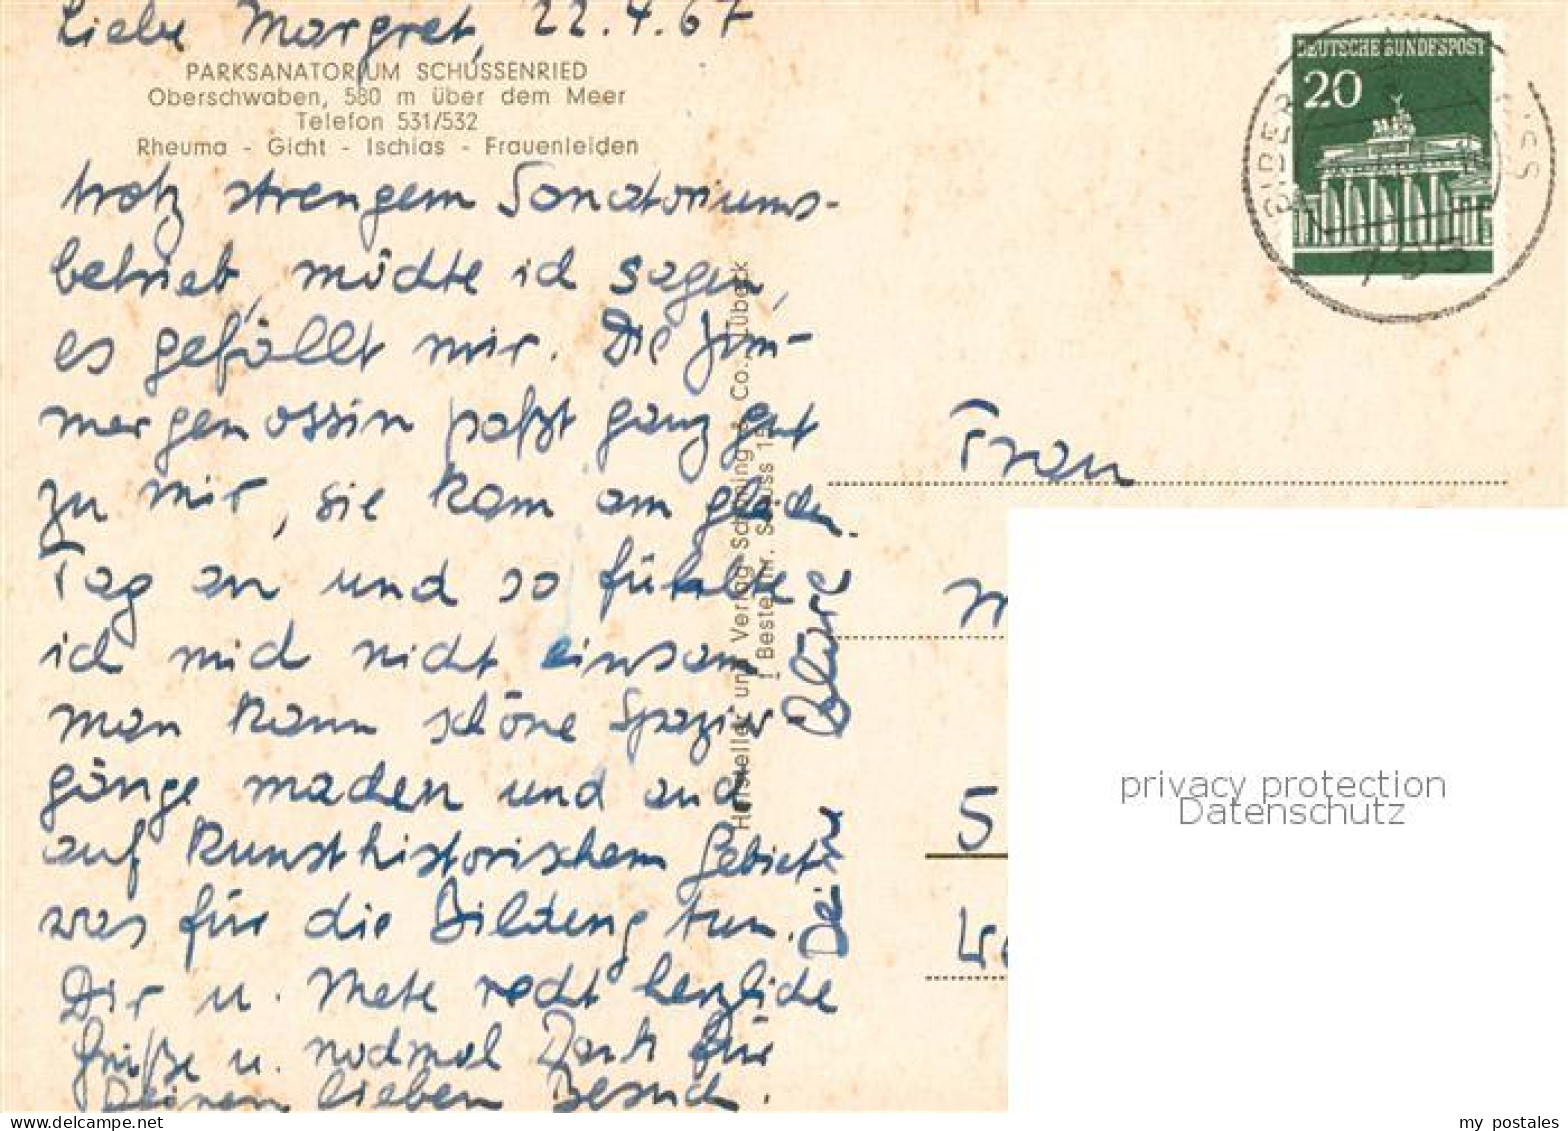 Liebe Margret, 22.4.67
PARKSANATORIUM SCHUSSENRIED
Oberschwaben, 580 m über dem Meer
Telefon 531/532
Rheuma - Gicht - Ischias - Frauenleiden
trotz strengem Sanatoriums-
betrieb, möchte ich sagen,
es gefällt mir. Die Zim-
mergenossin paßt ganz gut
zu mir, sie kam am gleichen
Tag an und so fühlte
ich mich nicht einsam
man kann schöne Spazier-
gänge machen und auch
auf kunsthistorischem Gebiet
was für die Bildung tun.
Dir u. Mete recht herzliche
Grüße u. nochmal Dank für
Deinen lieben Besuch.
Deine Cläre
Hersteller und Verlag Schöning & Co., Lübeck
Bestellnr. Schuss 15
DEUTSCHE BUNDESPOST
20
795
Frau
M
5
privacy protection
Datenschutz
my postales